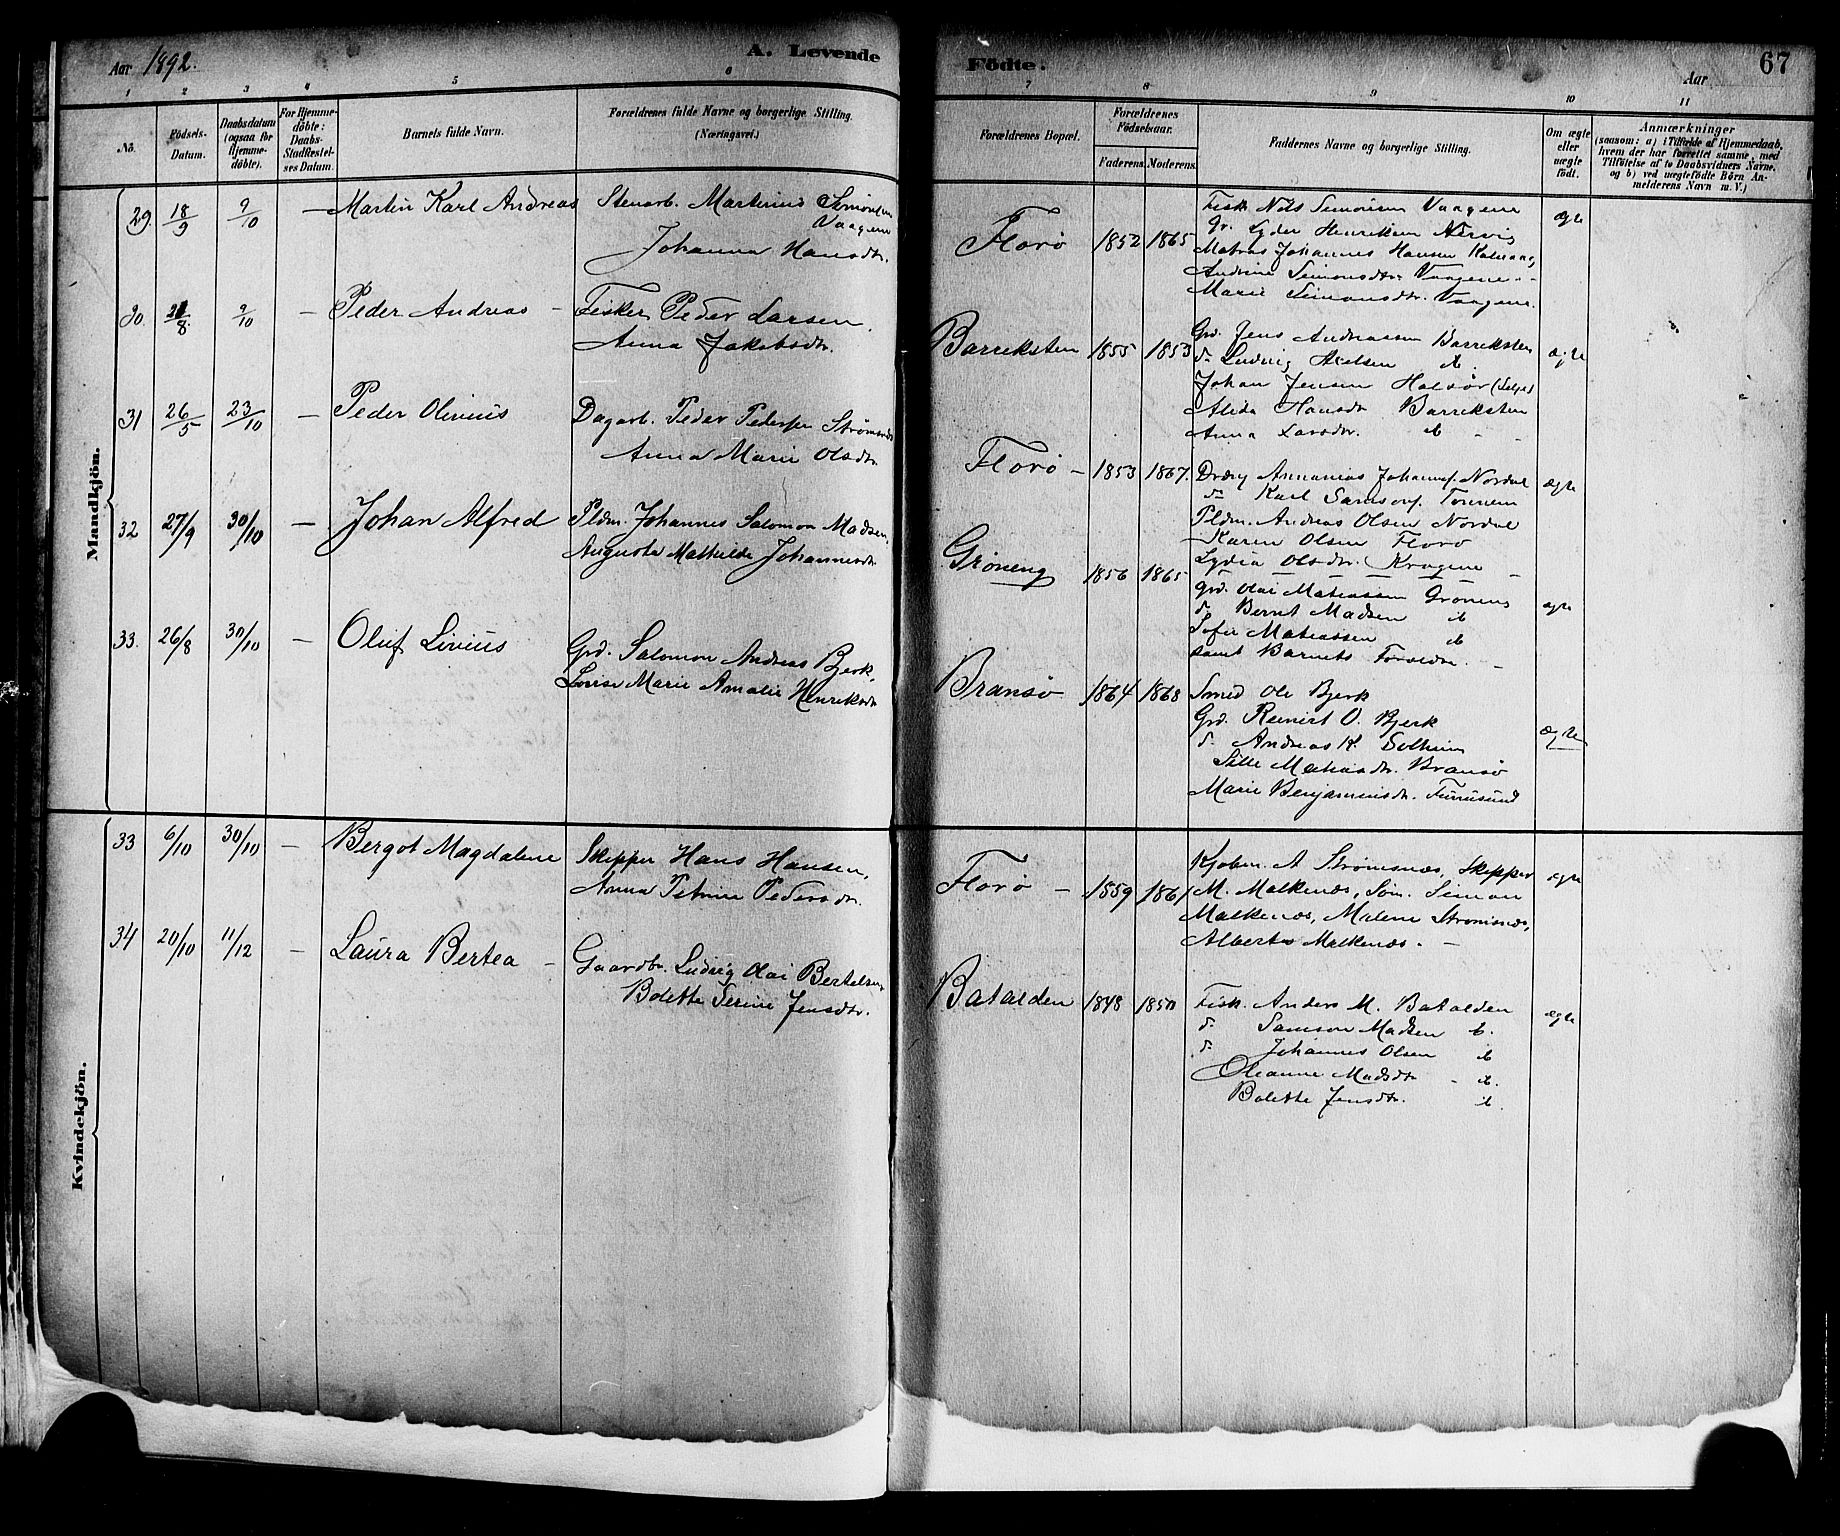 Aar 1892.
A. Levende
Födte.
Aar
67
1 2 3 4 5 6 7 8 9 10 11
No.
Födsels-Datum.
Daabsdatum (ogsaa for Hjemmedöbte).
For Hjemmedöbte: Daabs-Stadfæstelses Datum.
Barnets fulde Navn.
Forældrenes fulde Navne og borgerlige Stilling. (Næringsvei.)
Forældrenes Bopæl.
Forældrenes Födselsaar.
Faderens. Moderens.
Faddernes Navne og borgerlige Stilling.
Om ægte eller uægte födt.
Anmærkninger
(saasom: a) i Tilfælde af Hjemmedaab, hvem der har forrettet samme, med Tilföielse af to Daabsvidners Navne, og b) ved uægtefödte Börn Anmelderens Navn m. V.)
Mandkjön.
29. 18/9 9/10 – Martin Karl Andreas Stenarb. Martinus Simonsen
Vaagene
Johanna Hansdtr.
Florø 1852 1865
Fisk. Nils Simonsen Vaagene
Gr. Lyder Henriksen
Matros Johannes Hansen
Andrine Simonsdtr. Vaagene
Marie Simonsdtr. Vaagene.
ægte
30. /8 9/10 – Peder Andreas – Fisker Peder Larsen.
Anna Jakobsdtr.
Barreksten 1855 1853
Grd. Jens Andreassen Barreksten
d. Ludvig Axelsen ib.
Johan Jensen
Alida Hansdtr Barreksten
Anna Larsdtr. ib
ægte
31 26/5 23/10 – Peder Olivius Dagarb. Peder Pedersen
Anna Marie Olsdtr.
Florø – 1853 1867.
Ananias Johannes. Nordal
d. Karl Samsons.
Pldm. Andreas Olsen Nordal
Karen Olsen Florø
Lydia Olsdtr.
ægte
32 27/9 30/10 – Johan Alfred Pldm. Johannes Salomon Madsen,
Augusta Mathilde Johannesdtr
Grøneng 1856 1865
Grd. Olai Matiassen Grøneng
d. Bernt Madsen ib
Sofie Matiassen ib
samt Barnets Forældre. –
ægte
33. 26/8 30/10 – Oluf Livius Grd. Salomon Andreas Bjerk,
Lovise Marie Amalie Henriksdtr
Bransø 1864 1868
Smed Ole Bjerk
Grd. Reinert O. Bjerk
d. Andreas K. Solheim
Sille Matiasdtr. Bransø
Marie Benjaminsdtr. Furusund
ægte
Kvindekjön.
33 6/10 30/10 – Bergot Magdalene Skipper Hans Hansen,
Anna Petrine Pedersdtr.
Florø – 1859 1861
Kjøbm. A Strømsnæs, Skipper
M. Malkenæs, Søm. Simon
Malkenæs, Malene Strømsnæs,
Alberta Malkenæs. –
ægte
34 20/10 11/12 – Laura Bertea – Gaardbr. Ludvig Olai Bertelsen
Bolette Serine Jensdtr.
Batalden 1848 1850
Fisk. Anders M. Batalden
d. Samson Madsen ib.
d. Johannes Olsen ib
Oleanne Madsdtr – ib.
Bolette Jensdtr. ib.
ægte